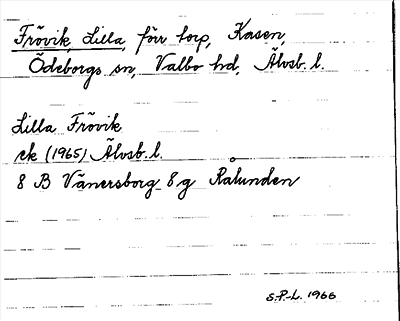 Frövik, Lilla, förr torp, Kasen,
Ödeborgs sn, Valbo hd, Älvsb. l.
Lilla Frövik
ek (1965) Älvsb. l.
8 B Vänersborg 8 g Rålunden
S.P-L. 1966